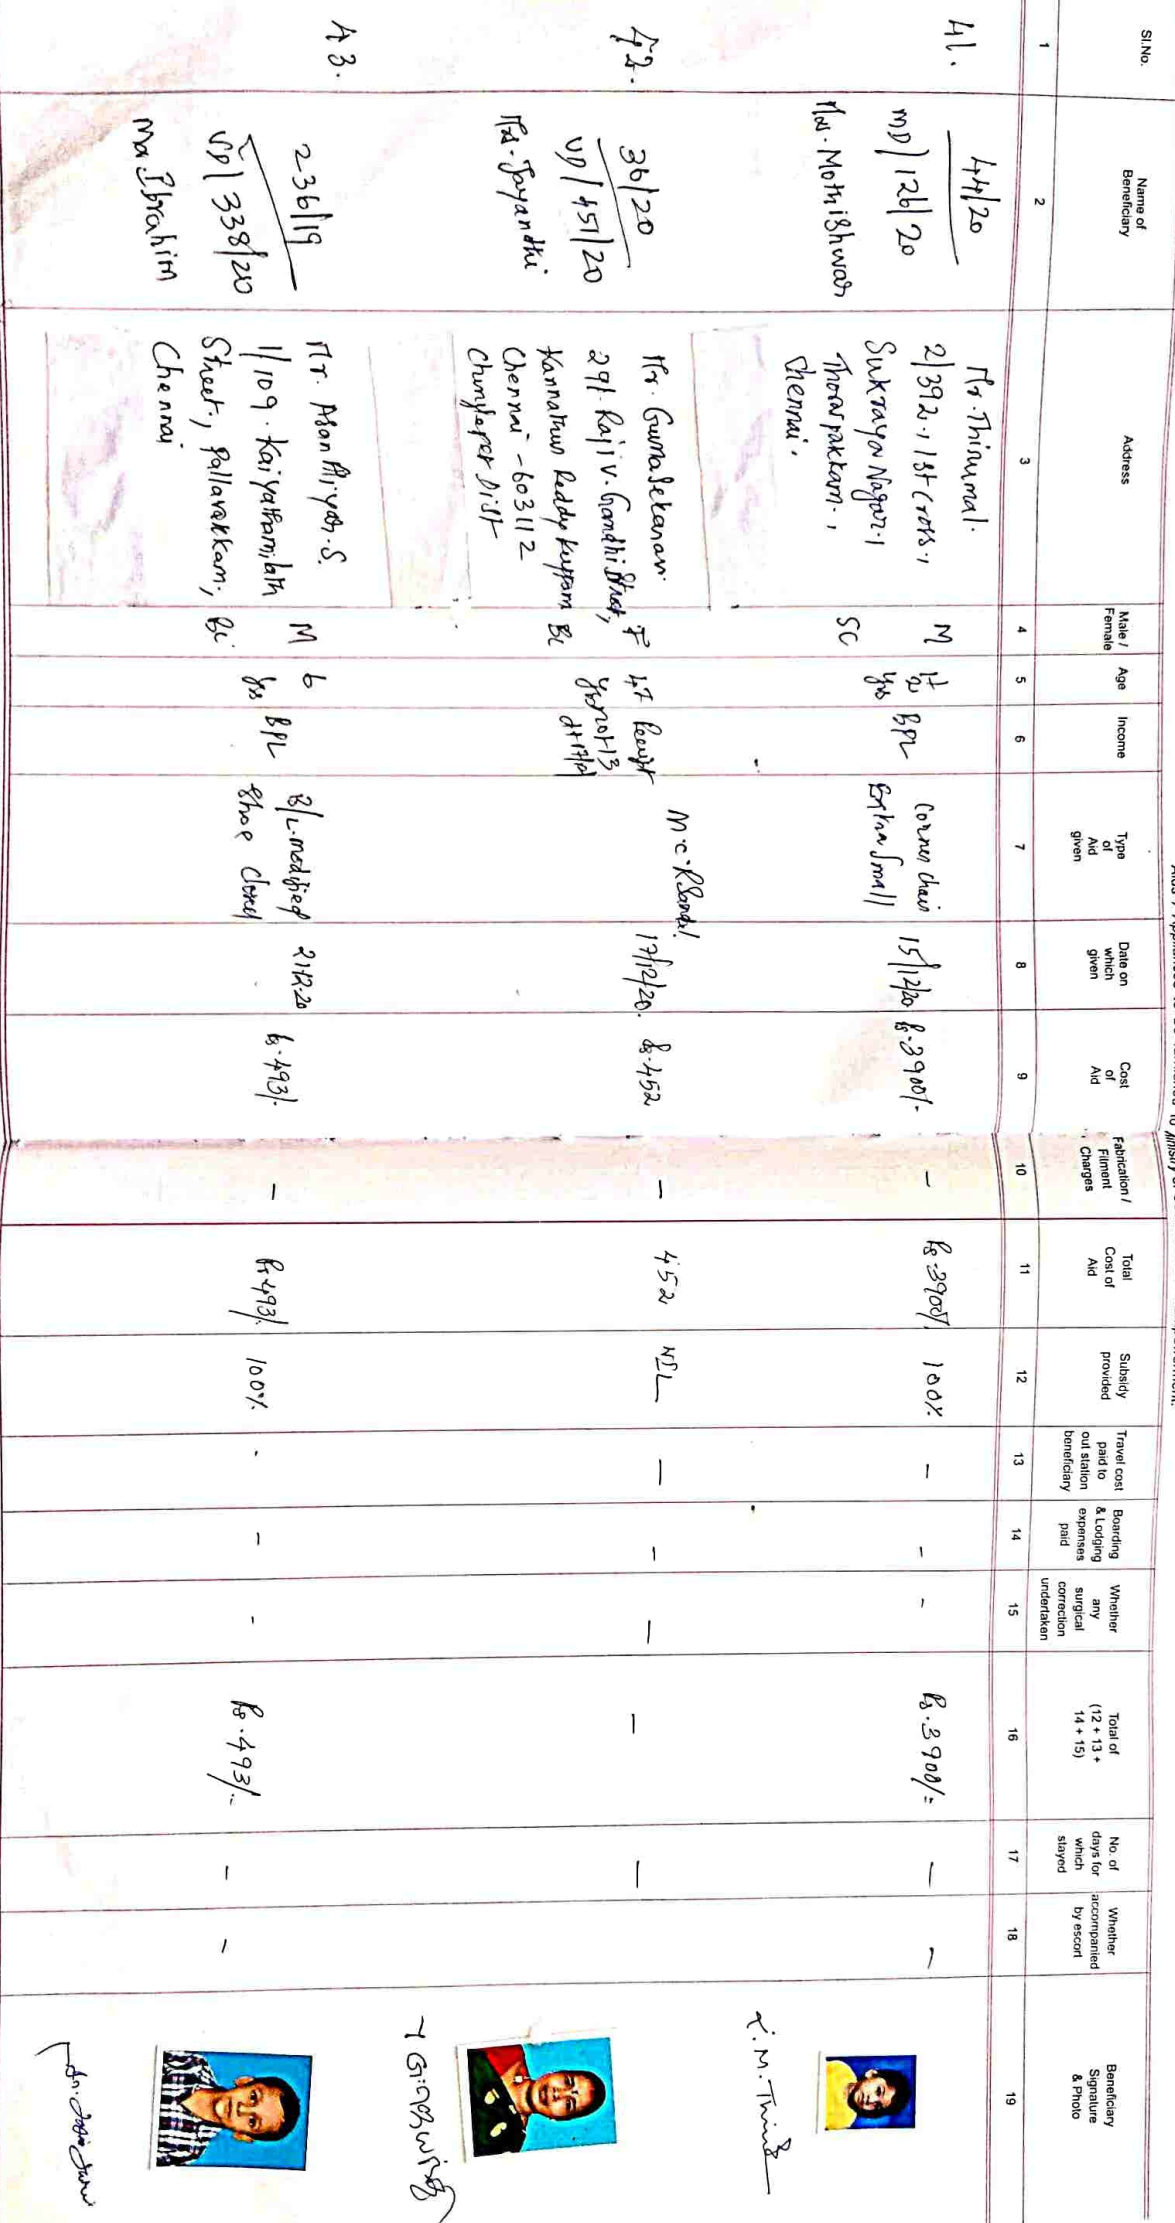 Sl.No.
Name of
Beneficiary
Address
Male /
Female
Age
Income
Type
of
Aid
given
Date on
which
given
Cost
of
Aid
Fabrication /
Filment
Charges
Total
Cost of
Aid
Subsidy
provided
Travel cost
paid to
out station
beneficiary
Boarding
& Lodging
expenses
paid
Whether
any
surgical
correction
undertaken
Total of
(12 + 13 +
14 + 15)
No. of
days for
which
stayed
Whether
accompanied
by escort
Beneficiary
Signature
& Photo
1 2 3 4 5 6 7 8 9 10 11 12 13 14 15 16 17 18 19
41.
44/20
MD/126/20
Mothishwar
Mr. Thirumal.
2/392, 1st Cross,
Sukraya Nagar,
Thoraipakkam,
Chennai.
M
SC
yrs
BPL
Corner chair
Extra Small
15/12/20
Rs.3900/-
-
Rs.3900/-
100%
-
-
-
Rs.3900/=
-
-
42.
36/20
VD/451/20
Jayandhi
Mr. Gunasekaran.
291. Rajiv. Gandhi Street,
Kannathur Reddy Kuppam
Chennai - 603112
Dist
F
BC
47
yrs
Receipt
not 13
dt 17/12
M C R Sandal.
17/12/20.
Rs.452
-
452
NIL
-
-
-
-
-
43.
236/19
VD/338/20
Ibrahim
Mr. Asan Miyan. S.
1/109. Kaiyathamilath
Street, Pallavakkam,
Chennai
M
BC
6
yrs
BPL
B/L modified
Shoe Closed
21-12-20
Rs.493/-
-
Rs.493/-
100%
-
-
-
Rs.493/-
-
-